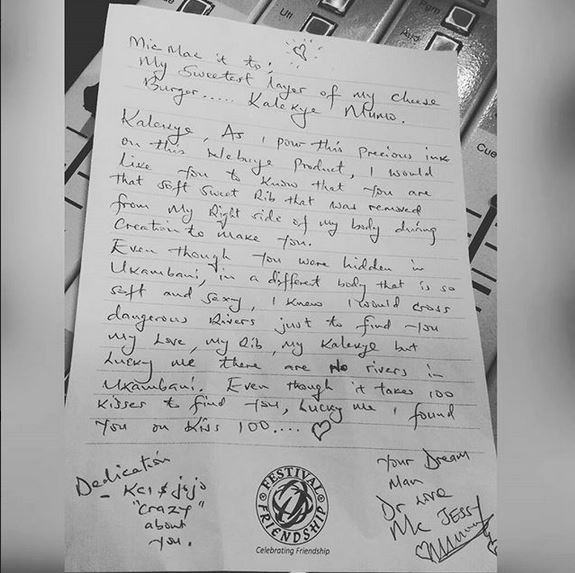 Utl
Pgm
Aud
Cue
Mic Mac it to;
My Sweetest layer of my cheese
Burger..... Kalekye Mumo.
Kalekye, As I pour this precious ink
on this Webuye product, I would
like you to know that you are
that soft sweet Rib that was removed
from my Right side of my body during
Creation to make you.
Even though you were hidden in
Ukambani, in a different body that is so
soft and sexy, I knew I would cross
dangerous Rivers just to find you
my Love, my Rib, my Kalekye but
Lucky me there are No rivers in
Ukambani. Even though it takes 100
kisses to find you, Lucky me I found
you on Kiss 100....
Dedication
- Kci & jojo
"Crazy"
about
you.
FESTIVAL
FRIENDSHIP
Celebrating Friendship
Your Dream
Man
Dr Love
Mc JESSY